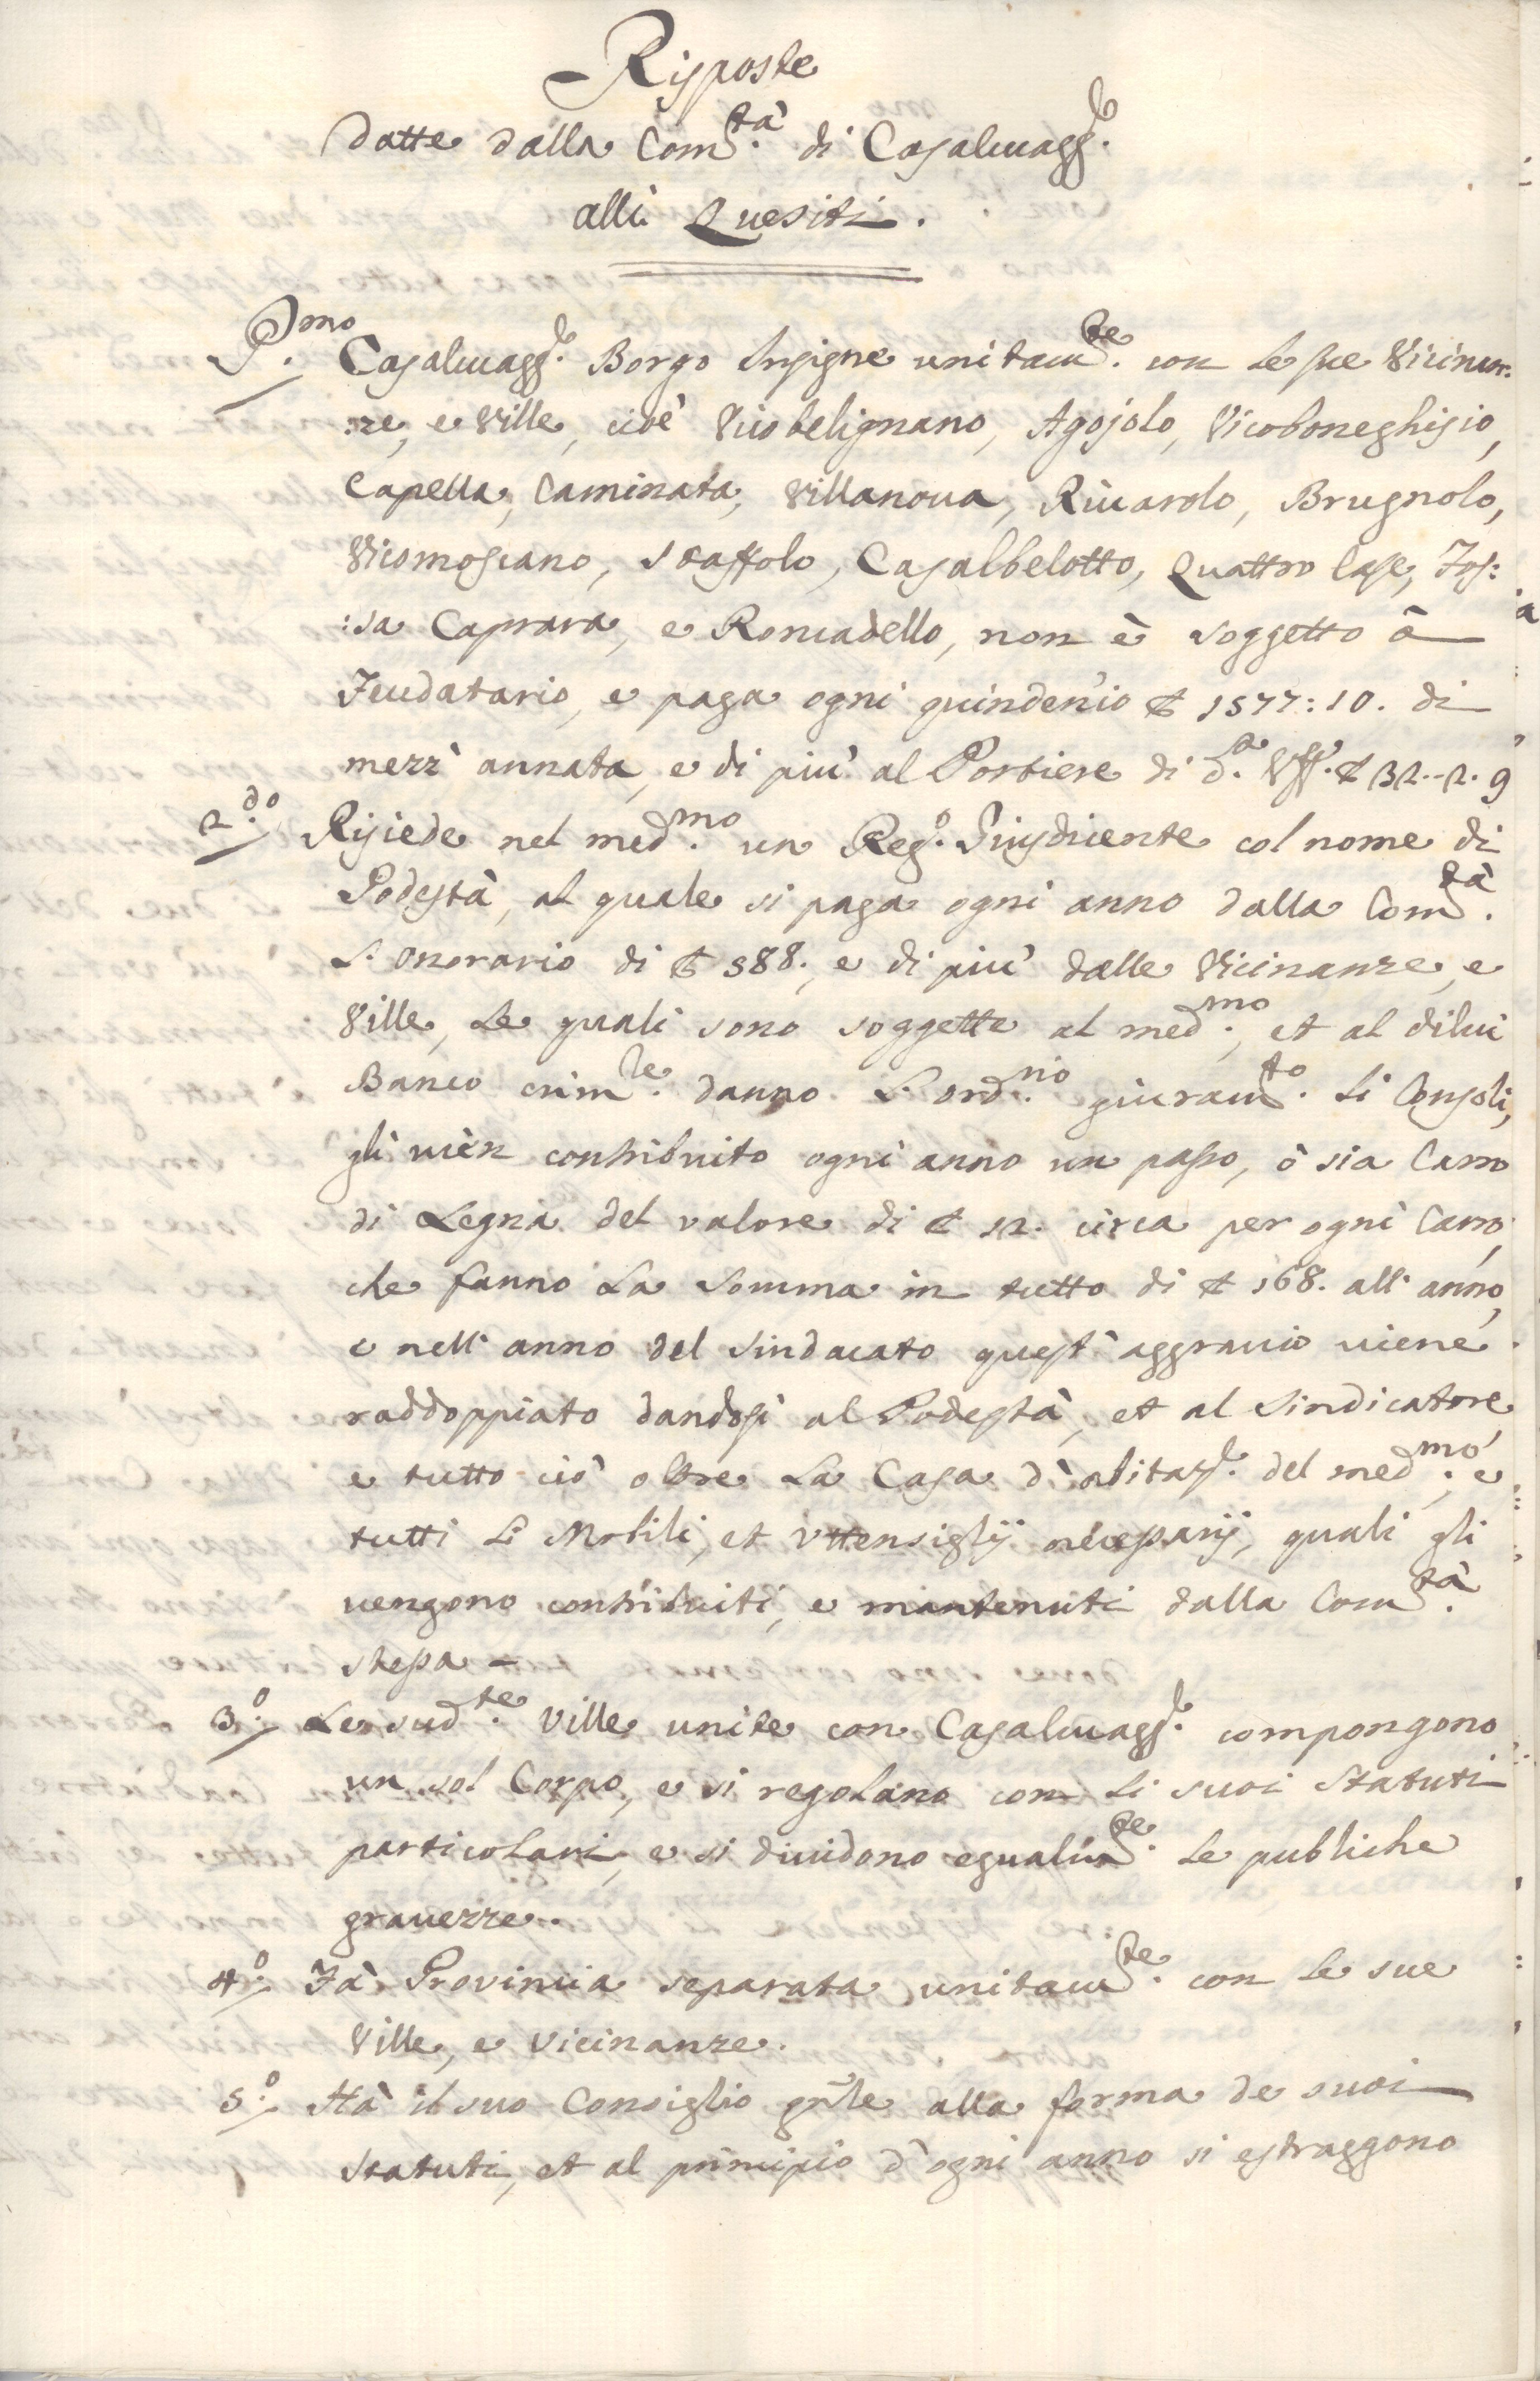 Risposte
datte dalla Com.tà di Casalmagg.e
alli Quesiti.
P.mo Casalmagg.e Borgo Insigne unitam.te con le sue Vicinan:
:ze, e Ville, cioè Vicobelignano, Agojolo, Vicoboneghisio,
Capella, Caminata, Villanova, Rivarolo, Brugnolo,
Vicomoscano, Staffolo, Casalbelotto, Quattro Case, Fos:
:sa Caprara, e Roncadello, non è soggetto à
Feudatario, e paga ogni quindenio £ 1577:10. di
mezz' annata, e di più al Portiere di d.o Uff.o £ 32.-2.9
2.do Risiede nel med.mo un Reg.o Giusdicente col nome di
Podestà, al quale si paga ogni anno dalla Com.tà
L'onorario di £ 588., e di più dalle Vicinanze, e
Ville, le quali sono soggette al med.mo, et al dilui
Banco crim.le danno l'ord.rio giuram.to li Consoli,
gli vien contribuito ogni anno un passo, ò sia Carro
di Legna del valore di £ 12. circa per ogni Carro,
che fanno la somma in tutto di £ 168. all'anno,
e nell'anno del Sindacato quest'aggravio viene
raddoppiato dandosi al Podestà, et al Sindicatore
e tutto ciò oltre la Casa d'abitaz.e del med.mo, e
tutti li Mobili, et Uttensiglij necessarij, quali gli
vengono contribuiti, e mantenuti dalla Com.tà
stessa -
3.o Le sud.te Ville unite con Casalmagg.e compongono
un sol Corpo, e si regolano con li suoi Statuti
particolari, e si dividono egualm.te le publiche
gravezze.
4.o Fà Provincia separata unitam.te con le sue
Ville, e Vicinanze.
5.o Hà il suo Consiglio gñle alla forma de suoi
Statuti, et al principio d'ogni anno si estraggono